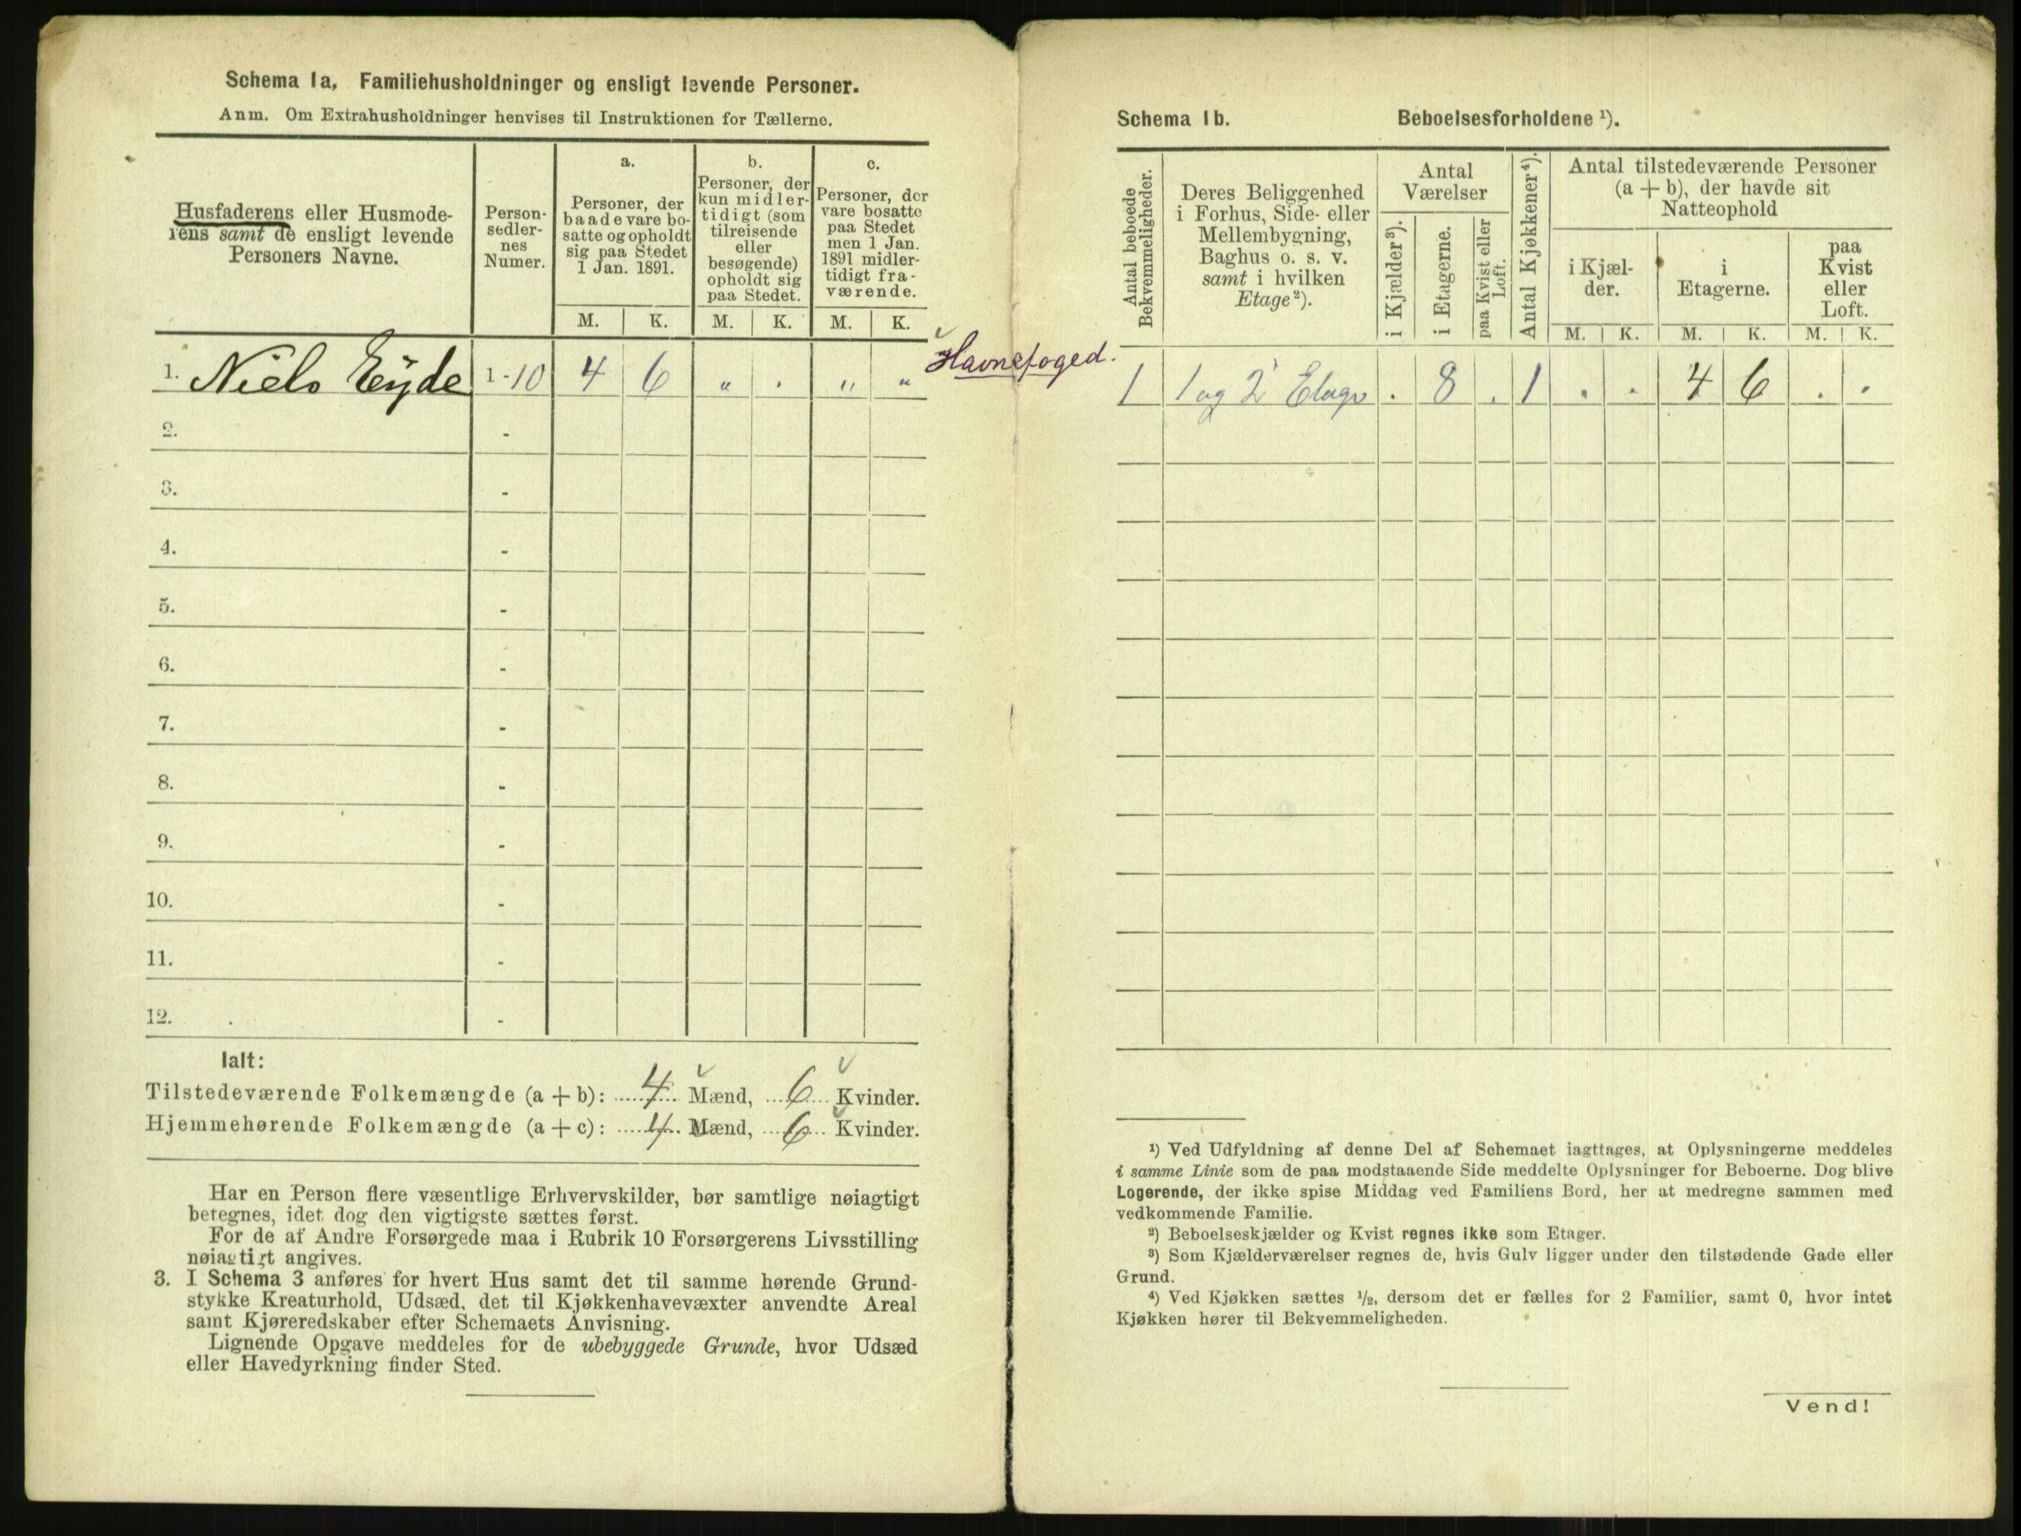 Schema 1a, Familiehusholdninger og ensligt levende Personer.
Anm. Om Extrahusholdninger henvises til Instruktionen for Tællerne.
Husfaderens eller Husmode-
rens samt de ensligt levende
Personers Navne.
Person-
sedler-
nes
Numer.
a.
Personer, der
baade vare bo-
satte og opholdt
sig paa Stedet
1 Jan. 1891.
b.
Personer, der
kun midler-
tidigt (som
tilreisende
eller
besøgende)
opholdt sig
paa Stedet.
c.
Personer, der
vare bosatte
paa Stedet
men 1 Jan.
1891 midler-
tidigt fra-
værende.
M. K. M. K. M. K.
1. Niels Eyde 1-10 4 6 „ . „ „ Havnefoged.
2. -
3. -
4. -
5. -
6. -
7. -
8. -
9. -
10. -
11. -
12. -
Ialt:
Tilstedeværende Folkemængde (a + b): 4 Mænd, 6 Kvinder.
Hjemmehørende Folkemængde (a + c): 4 Mænd, 6 Kvinder.
Har en Person flere væsentlige Erhvervskilder, bør samtlige nøiagtigt
betegnes, idet dog den vigtigste sættes først.
For de af Andre Forsørgede maa i Rubrik 10 Forsørgerens Livsstilling
nøiagtigt angives.
3. I Schema 3 anføres for hvert Hus samt det til samme hørende Grund-
stykke Kreaturhold, Udsæd, det til Kjøkkenhavevæxter anvendte Areal
samt Kjøreredskaber efter Schemaets Anvisning.
Lignende Opgave meddeles for de ubebyggede Grunde, hvor Udsæd
eller Havedyrkning finder Sted.
Schema 1b. Beboelsesforholdene ¹).
Antal beboede
Bekvemmeligheder.
Deres Beliggenhed
i Forhus, Side- eller
Mellembygning,
Baghus o. s. v.
samt i hvilken
Etage ²).
Antal
Værelser
i Kjælder ³).
i Etagerne.
paa Kvist eller
Loft.
Antal Kjøkkener ⁴).
Antal tilstedeværende Personer
(a + b), der havde sit
Natteophold
i Kjæl-
der.
i
Etagerne.
paa
Kvist
eller
Loft.
M. K. M. K. M. K.
1 1 og 2 Etage . 8 . 1 . . 4 6 . .
¹) Ved Udfyldning af denne Del af Schemaet iagttages, at Oplysningerne meddeles
i samme Linie som de paa modstaaende Side meddelte Oplysninger for Beboerne. Dog blive
Logerende, der ikke spise Middag ved Familiens Bord, her at medregne sammen med
vedkommende Familie.
²) Beboelseskjælder og Kvist regnes ikke som Etager.
³) Som Kjælderværelser regnes de, hvis Gulv ligger under den tilstødende Gade eller
Grund.
⁴) Ved Kjøkken sættes ½, dersom det er fælles for 2 Familier, samt 0, hvor intet
Kjøkken hører til Bekvemmeligheden.
Vend!